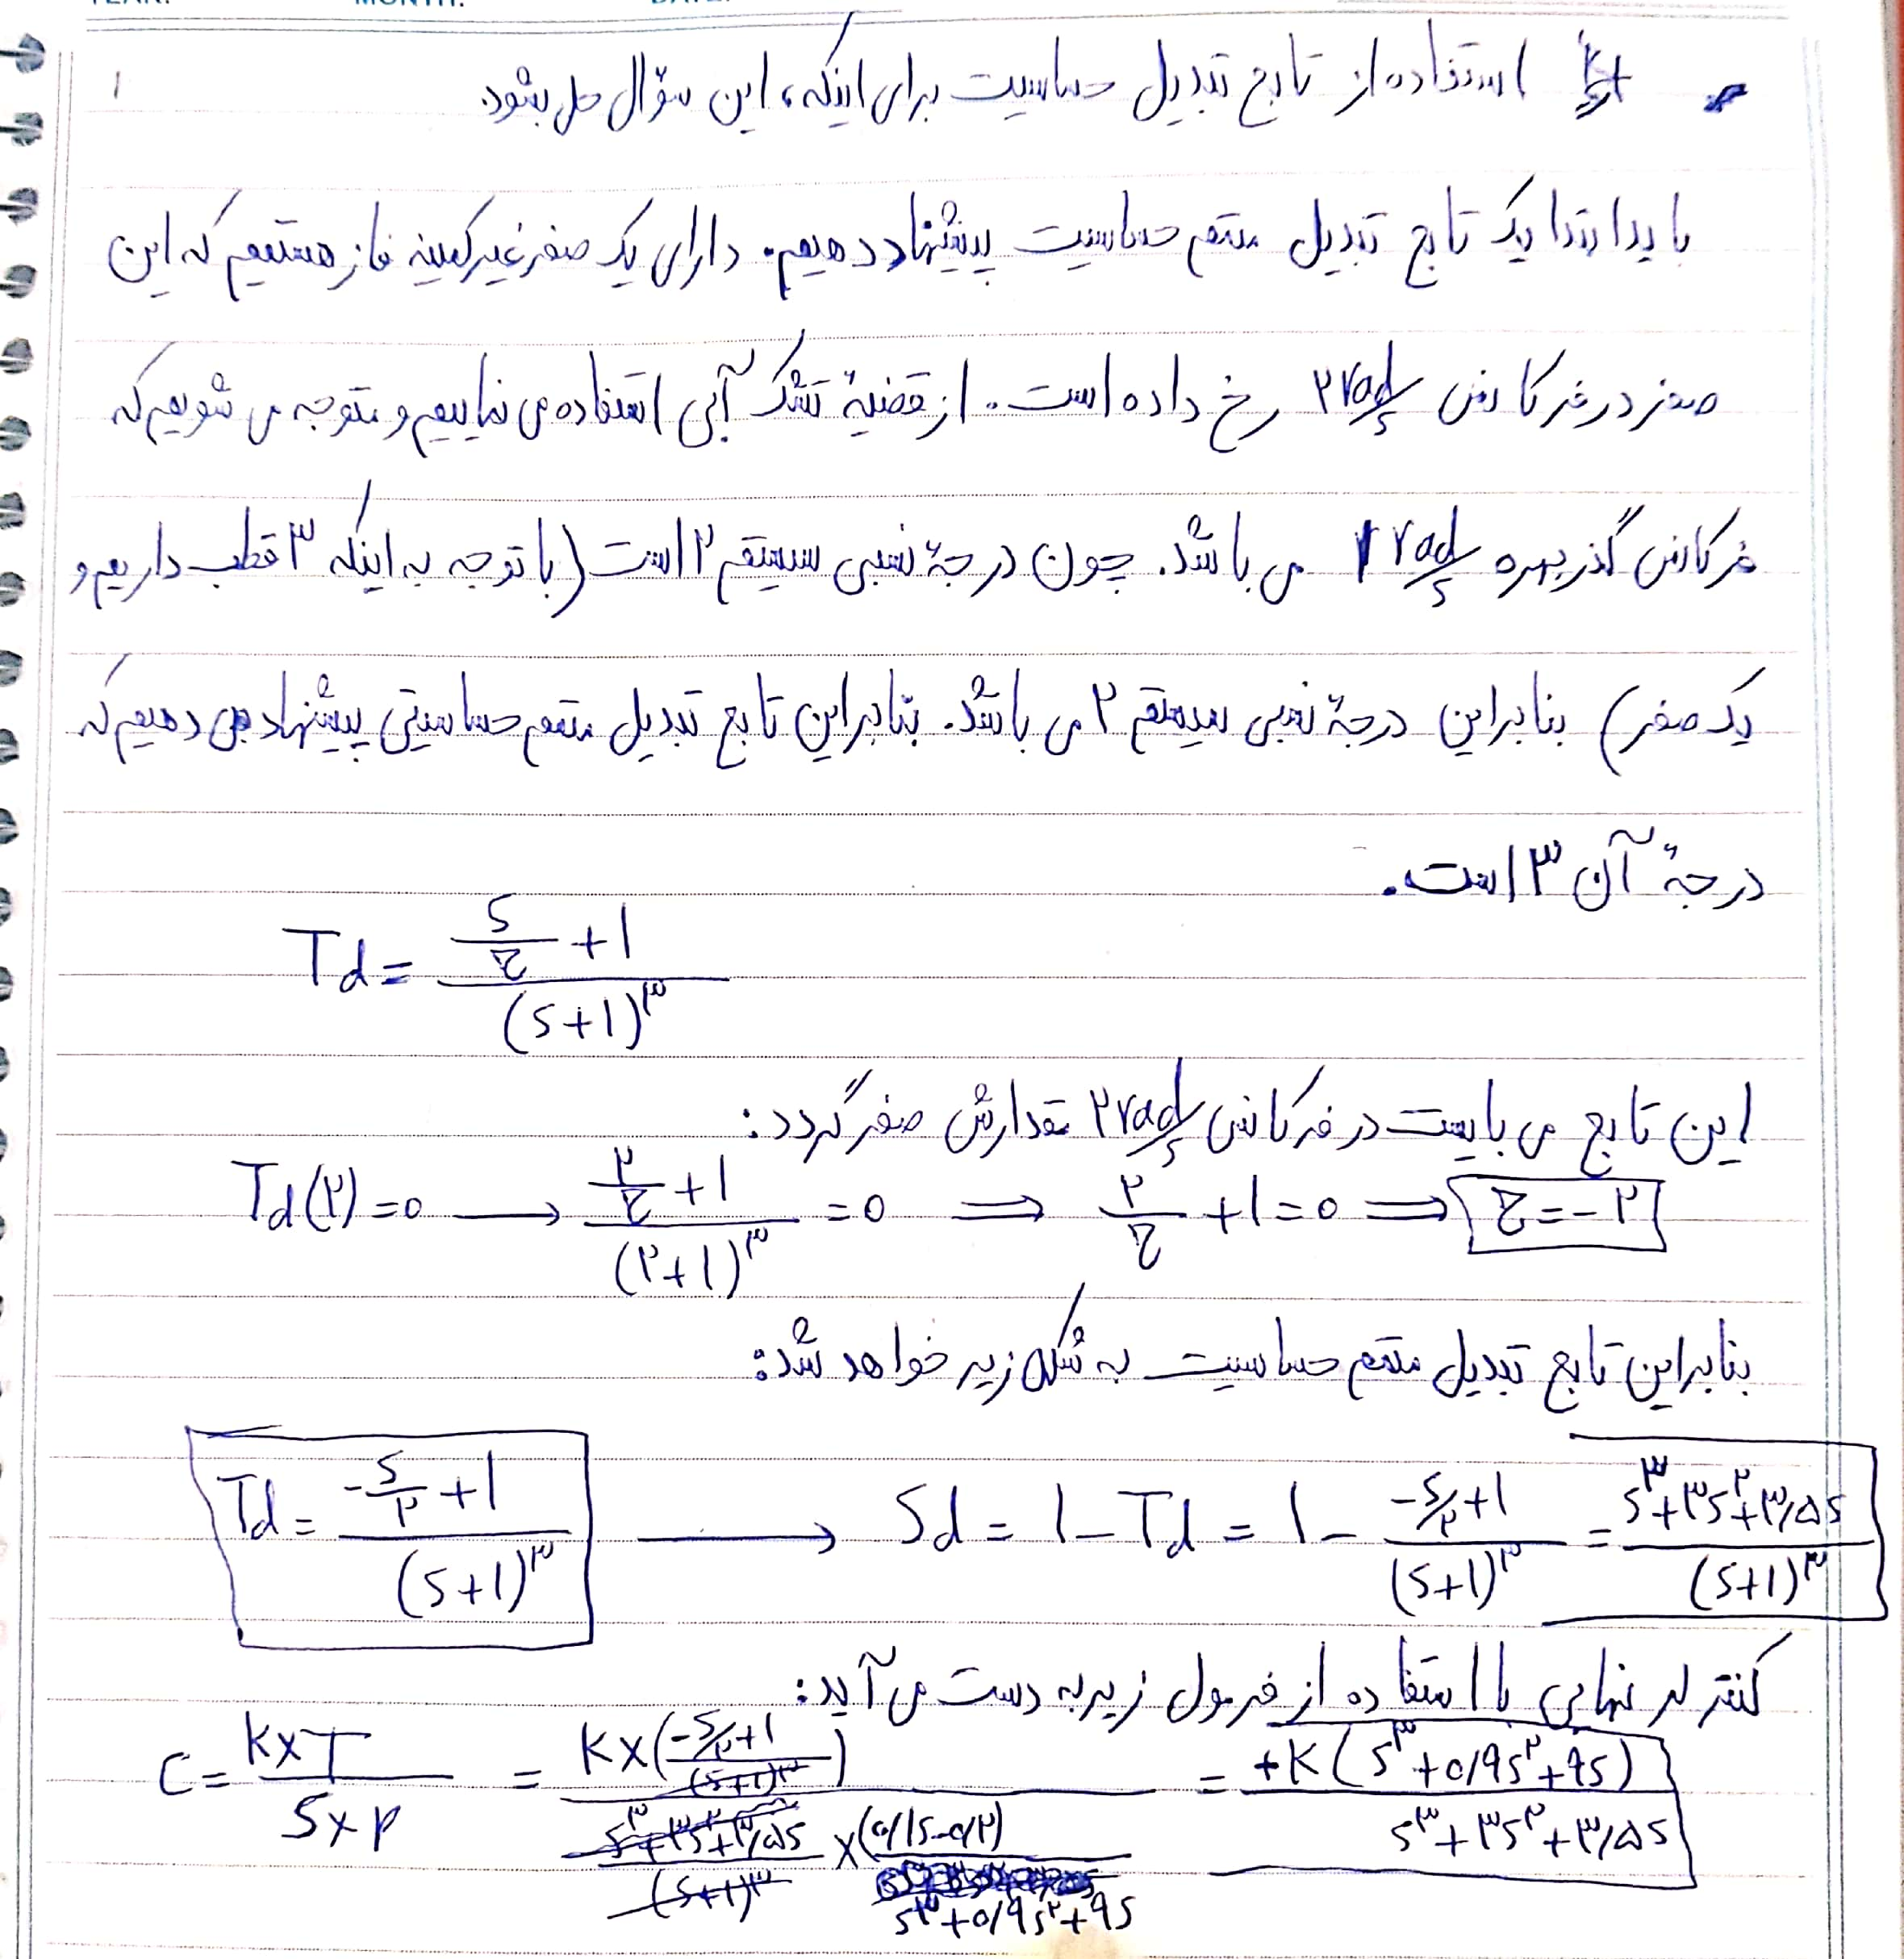 YEAR: MONTH: DATE:
۱
استفاده از تابع تبدیل حساسیت برای اینکه، این سؤال حل بشود
باید ابتدا یک تابع تبدیل متمم حساسیت پیشنهاد دهیم. دارای یک صفر غیر کمینه فاز هستیم که این
صفر در فرکانس ۲ rad/s رخ داده است. از قضیهٔ تشک آبی استفاده می نماییم و متوجه می شویم که
فرکانس گذر بهره ۱ rad/s می باشد. چون درجهٔ نسبی سیستم ۲ است (با توجه به اینکه ۳ قطب داریم و
یک صفر) بنابراین درجهٔ نسبی سیستم ۲ می باشد. بنابراین تابع تبدیل متمم حساسیتی پیشنهاد می دهیم که
درجهٔ آن ۳ است.
Td = (s/z + 1) / (s+1)^۳
این تابع می بایست در فرکانس ۲ rad/s مقدارش صفر گردد:
Td(۲) = 0 → (۲/z + 1) / (۲+1)^۳ = 0 ⇒ ۲/z + 1 = 0 ⇒ z = -۲
بنابراین تابع تبدیل متمم حساسیت به شکل زیر خواهد شد:
Td = (-s/۲ + 1) / (s+1)^۳ → Sd = 1 - Td = 1 - (-s/۲ + 1) / (s+1)^۳ = (s^۳ + ۳s^۲ + ۳/۵s) / (s+1)^۳
کنترلر نهایی با استفاده از فرمول زیر به دست می آید:
C = (K×T) / (S×P) = K×((-s/۲ + 1) / (s+1)^۳) / ((s^۳ + ۳s^۲ + ۳/۵s) / (s+1)^۳ × (0/1s - 0/۲) / (s^۳ + 0/۹s^۲ + ۹s)) = +K(s^۳ + 0/۹s^۲ + ۹s) / (s^۳ + ۳s^۲ + ۳/۵s)